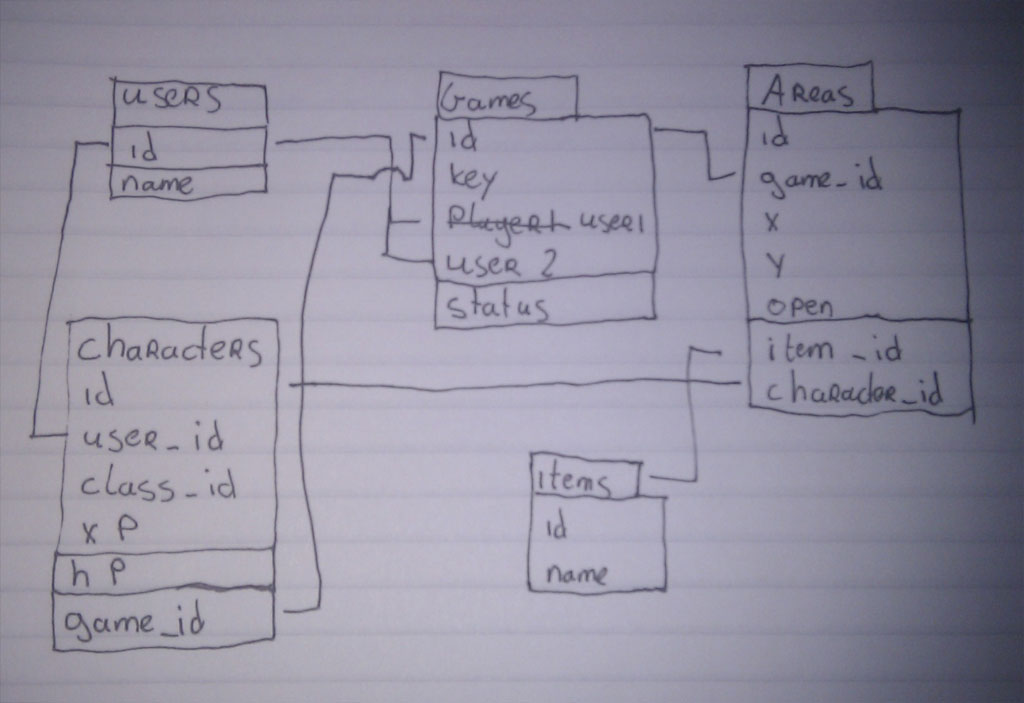 users
id
name
Games
id
key
Player1 user1
user 2
status
Areas
id
game_id
x
y
open
item_id
character_id
characters
id
user_id
class_id
xp
hp
game_id
items
id
name